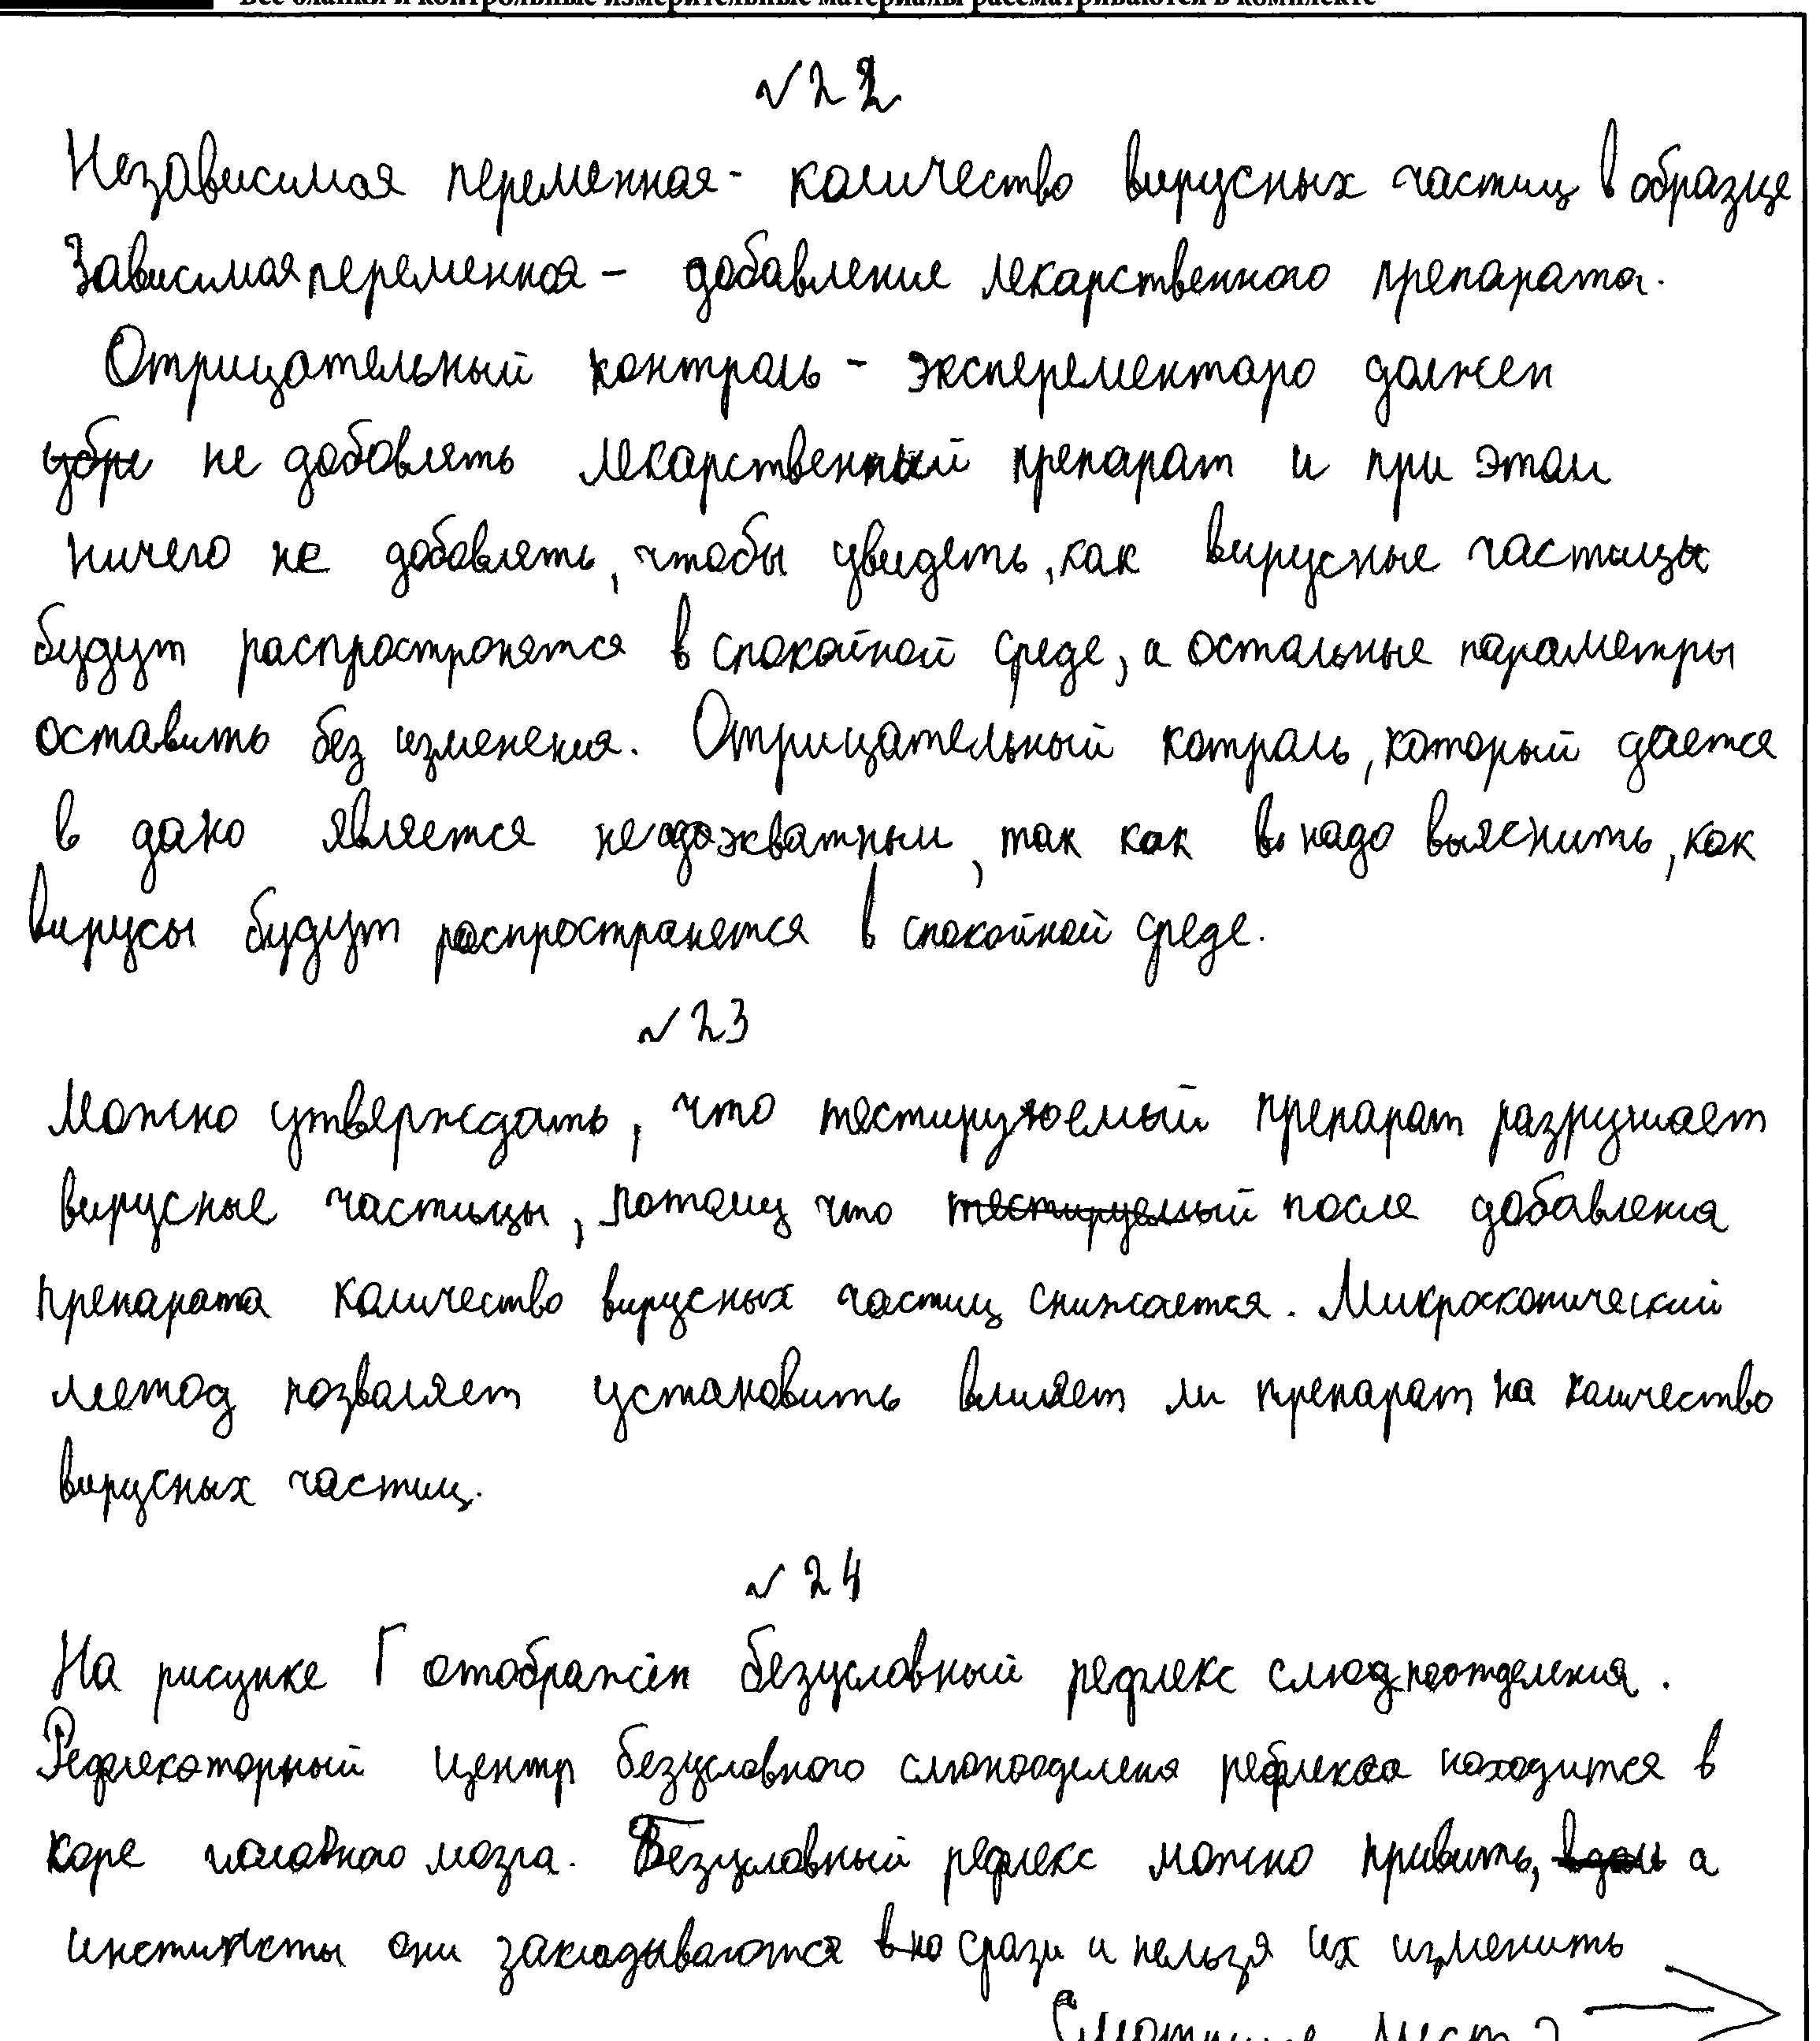 Все бланки и контрольные измерительные материалы рассматриваются в комплекте
√22
Независимая переменная - количество вирусных частиц в образце
Зависимая переменная – добавление лекарственного препарата.
Отрицательный контроль – эксперементаро должен
убрі не добавлять лекарственный препарат и при этом
ничего не добавлять, чтобы увидеть, как вирусные частицы
будут распространятся в спокойной среде, а остальные параметры
оставить без изменения. Отрицательный котроль, который дается
в дано является неадэкватным, так как надо выяснить, как
вирусы будут распространятся в спокойной среде.
√23
Можно утверждать, что тестируюемый препарат разрушает
вирусные частицы, потому что тестируемый после добавления
препарата количество вирусных частиц снижается. Микроскопический
метод позваляет установить влияет ли препарат на количество
вирусных частиц.
√24
На рисунке Г отображён безусловный рефлекс слюдноотделения.
Рефлекаторный центр безусловного слюнооделеня рефлекса находится в
коре головного мозга. Безусловный рефлекс можно привить, а
инстинкты они закладываются сразу и нельзя их изменить
Смотрите лист 2